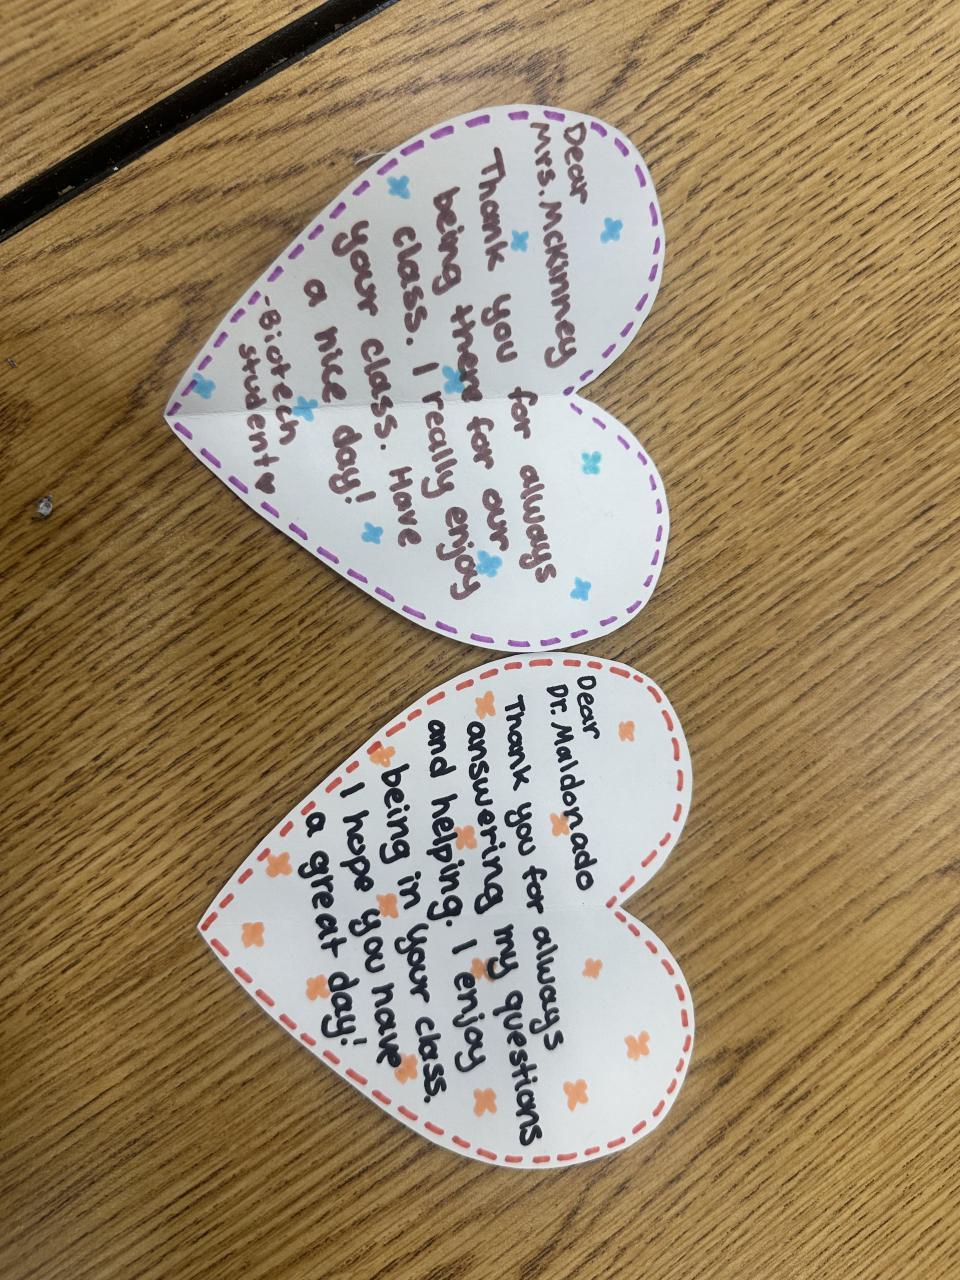 Dear
Mrs. McKinney
Thank you for always
being there for our
class. I really enjoy
your class. Have
a nice day!
-Biotech
student♥
Dear
Dr. Maldonado
Thank you for always
answering my questions
and helping. I enjoy
being in your class.
I hope you have
a great day!